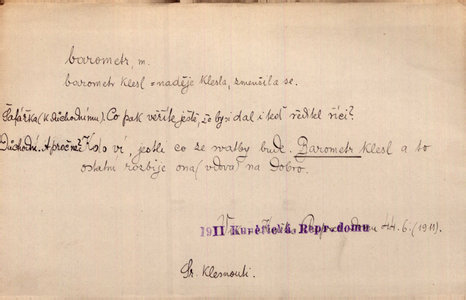 barometr, m.
barometr klesl = naděje klesla, zmenšila se.
Šafářka (k důchodnímu). Co pak věříte ještě, že by si dal i teď ředitel říci?
Důchodní. A proč ne? Kdo ví, jestli co ze svatby bude. Barometr klesl a to
ostatní rozbije ona (vdova) na dobro.
1911 Kunětická, Repr. domu 44. 6. (1911).
Sr. Klesnouti.